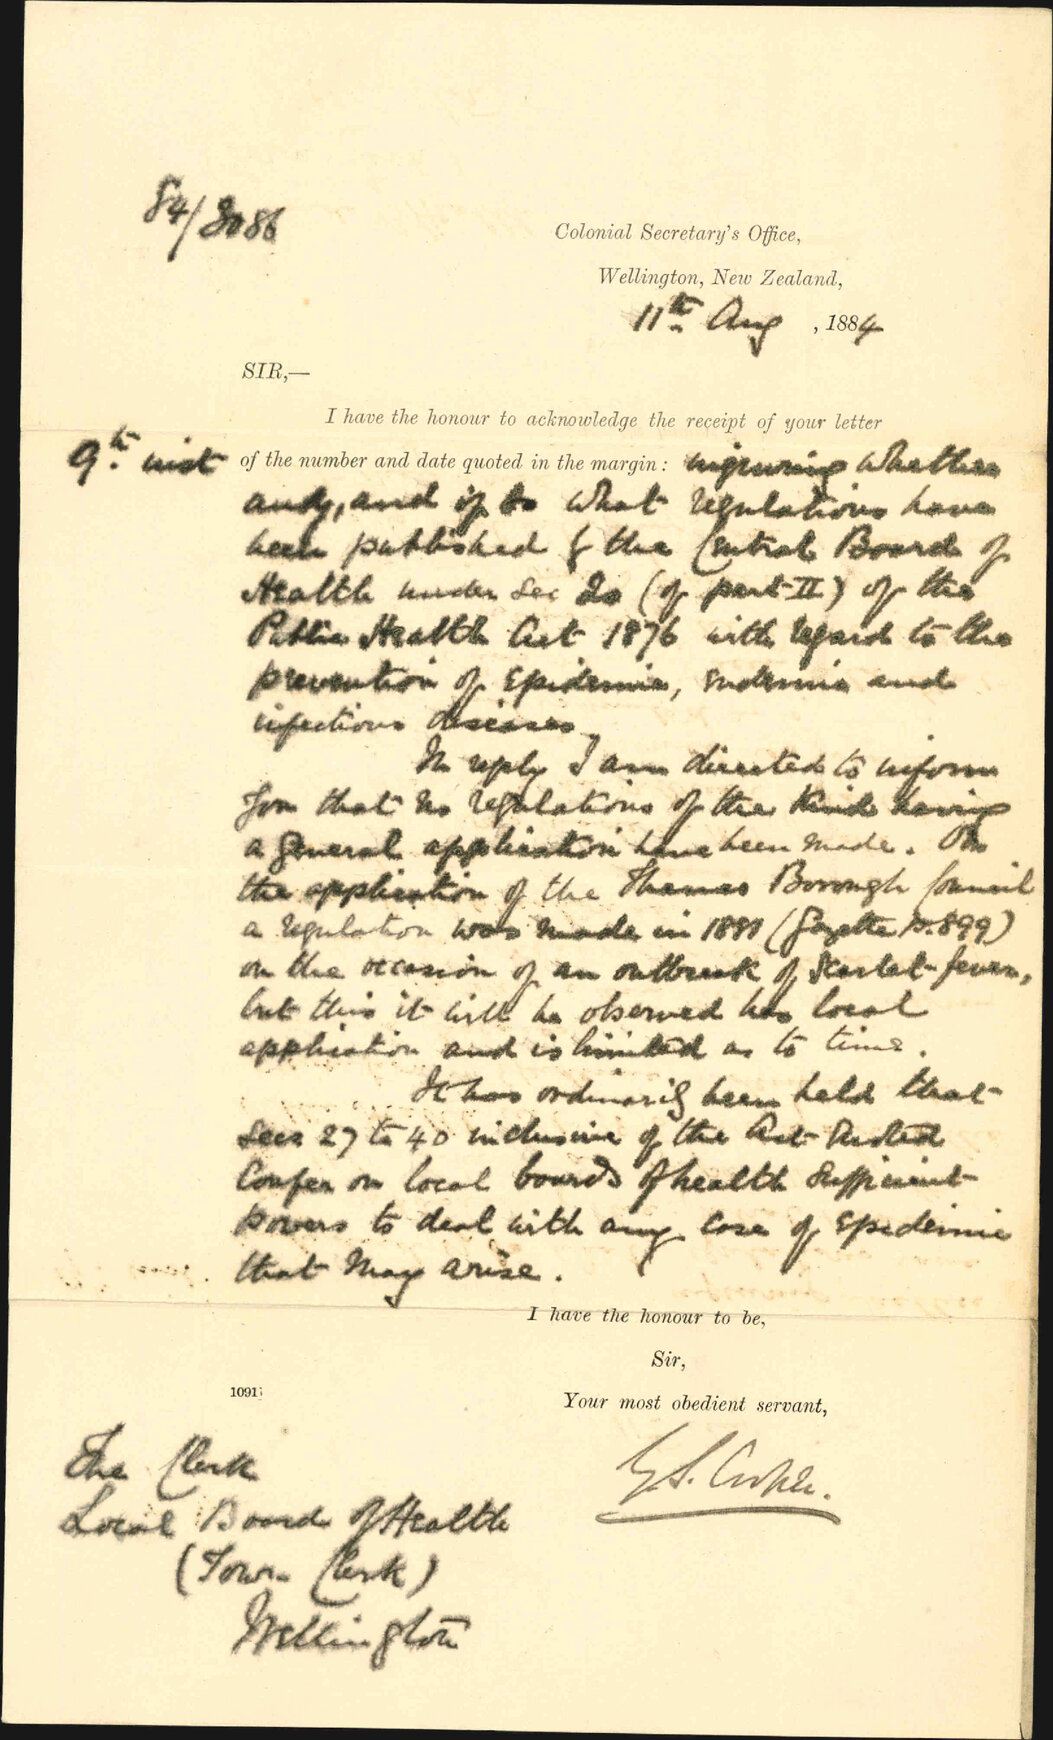 84/3086
Colonial Secretary's Office,
Wellington, New Zealand,
11th Aug , 1884
SIR,—
I have the honour to acknowledge the receipt of your letter
9th inst of the number and date quoted in the margin: inquiring whether
any, and if so what regulations have
been published by the Central Board of
Health under Sec 20 (of part II) of the
Public Health Act 1876 with regard to the
prevention of Epidemic, Endemic and
infectious diseases.
In reply I am directed to inform
you that no regulations of the kind having
a general application have been made. On
the application of the Thames Borough Council
a regulation was made in 1881 (Gazette p. 899)
on the occasion of an outbreak of Scarlet-fever,
but this it will be observed has local
application and is limited as to time.
It has ordinarily been held that
Secs 27 to 40 inclusive of the Act quoted
Confer on local boards of health sufficient
powers to deal with any case of Epidemic
that may arise.
I have the honour to be,
Sir,
1091
Your most obedient servant,
G. S. Cooper.
The Clerk
Local Board of Health
(Town Clerk)
Wellington